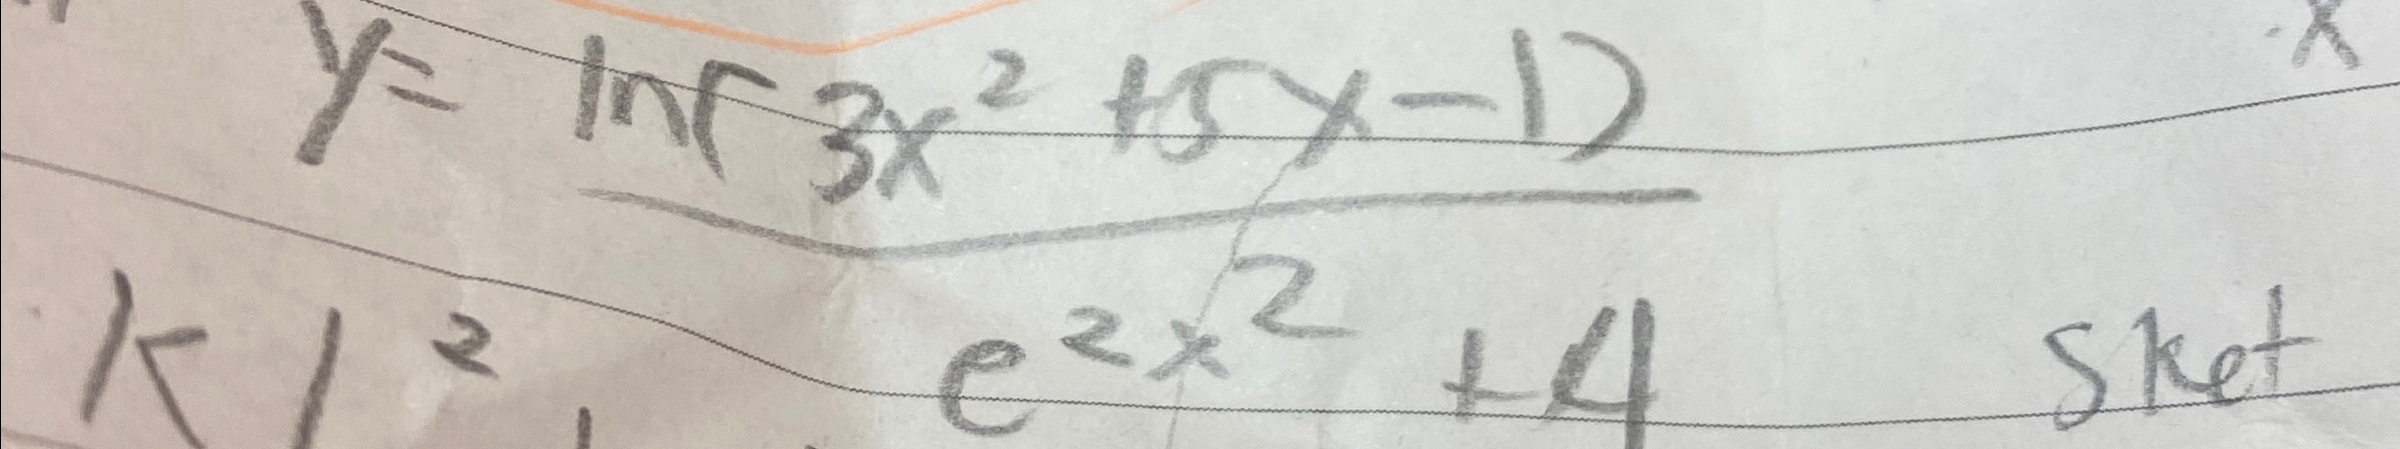 y = ln(3x² + 5x - 1)
e^2x² + 4 sket